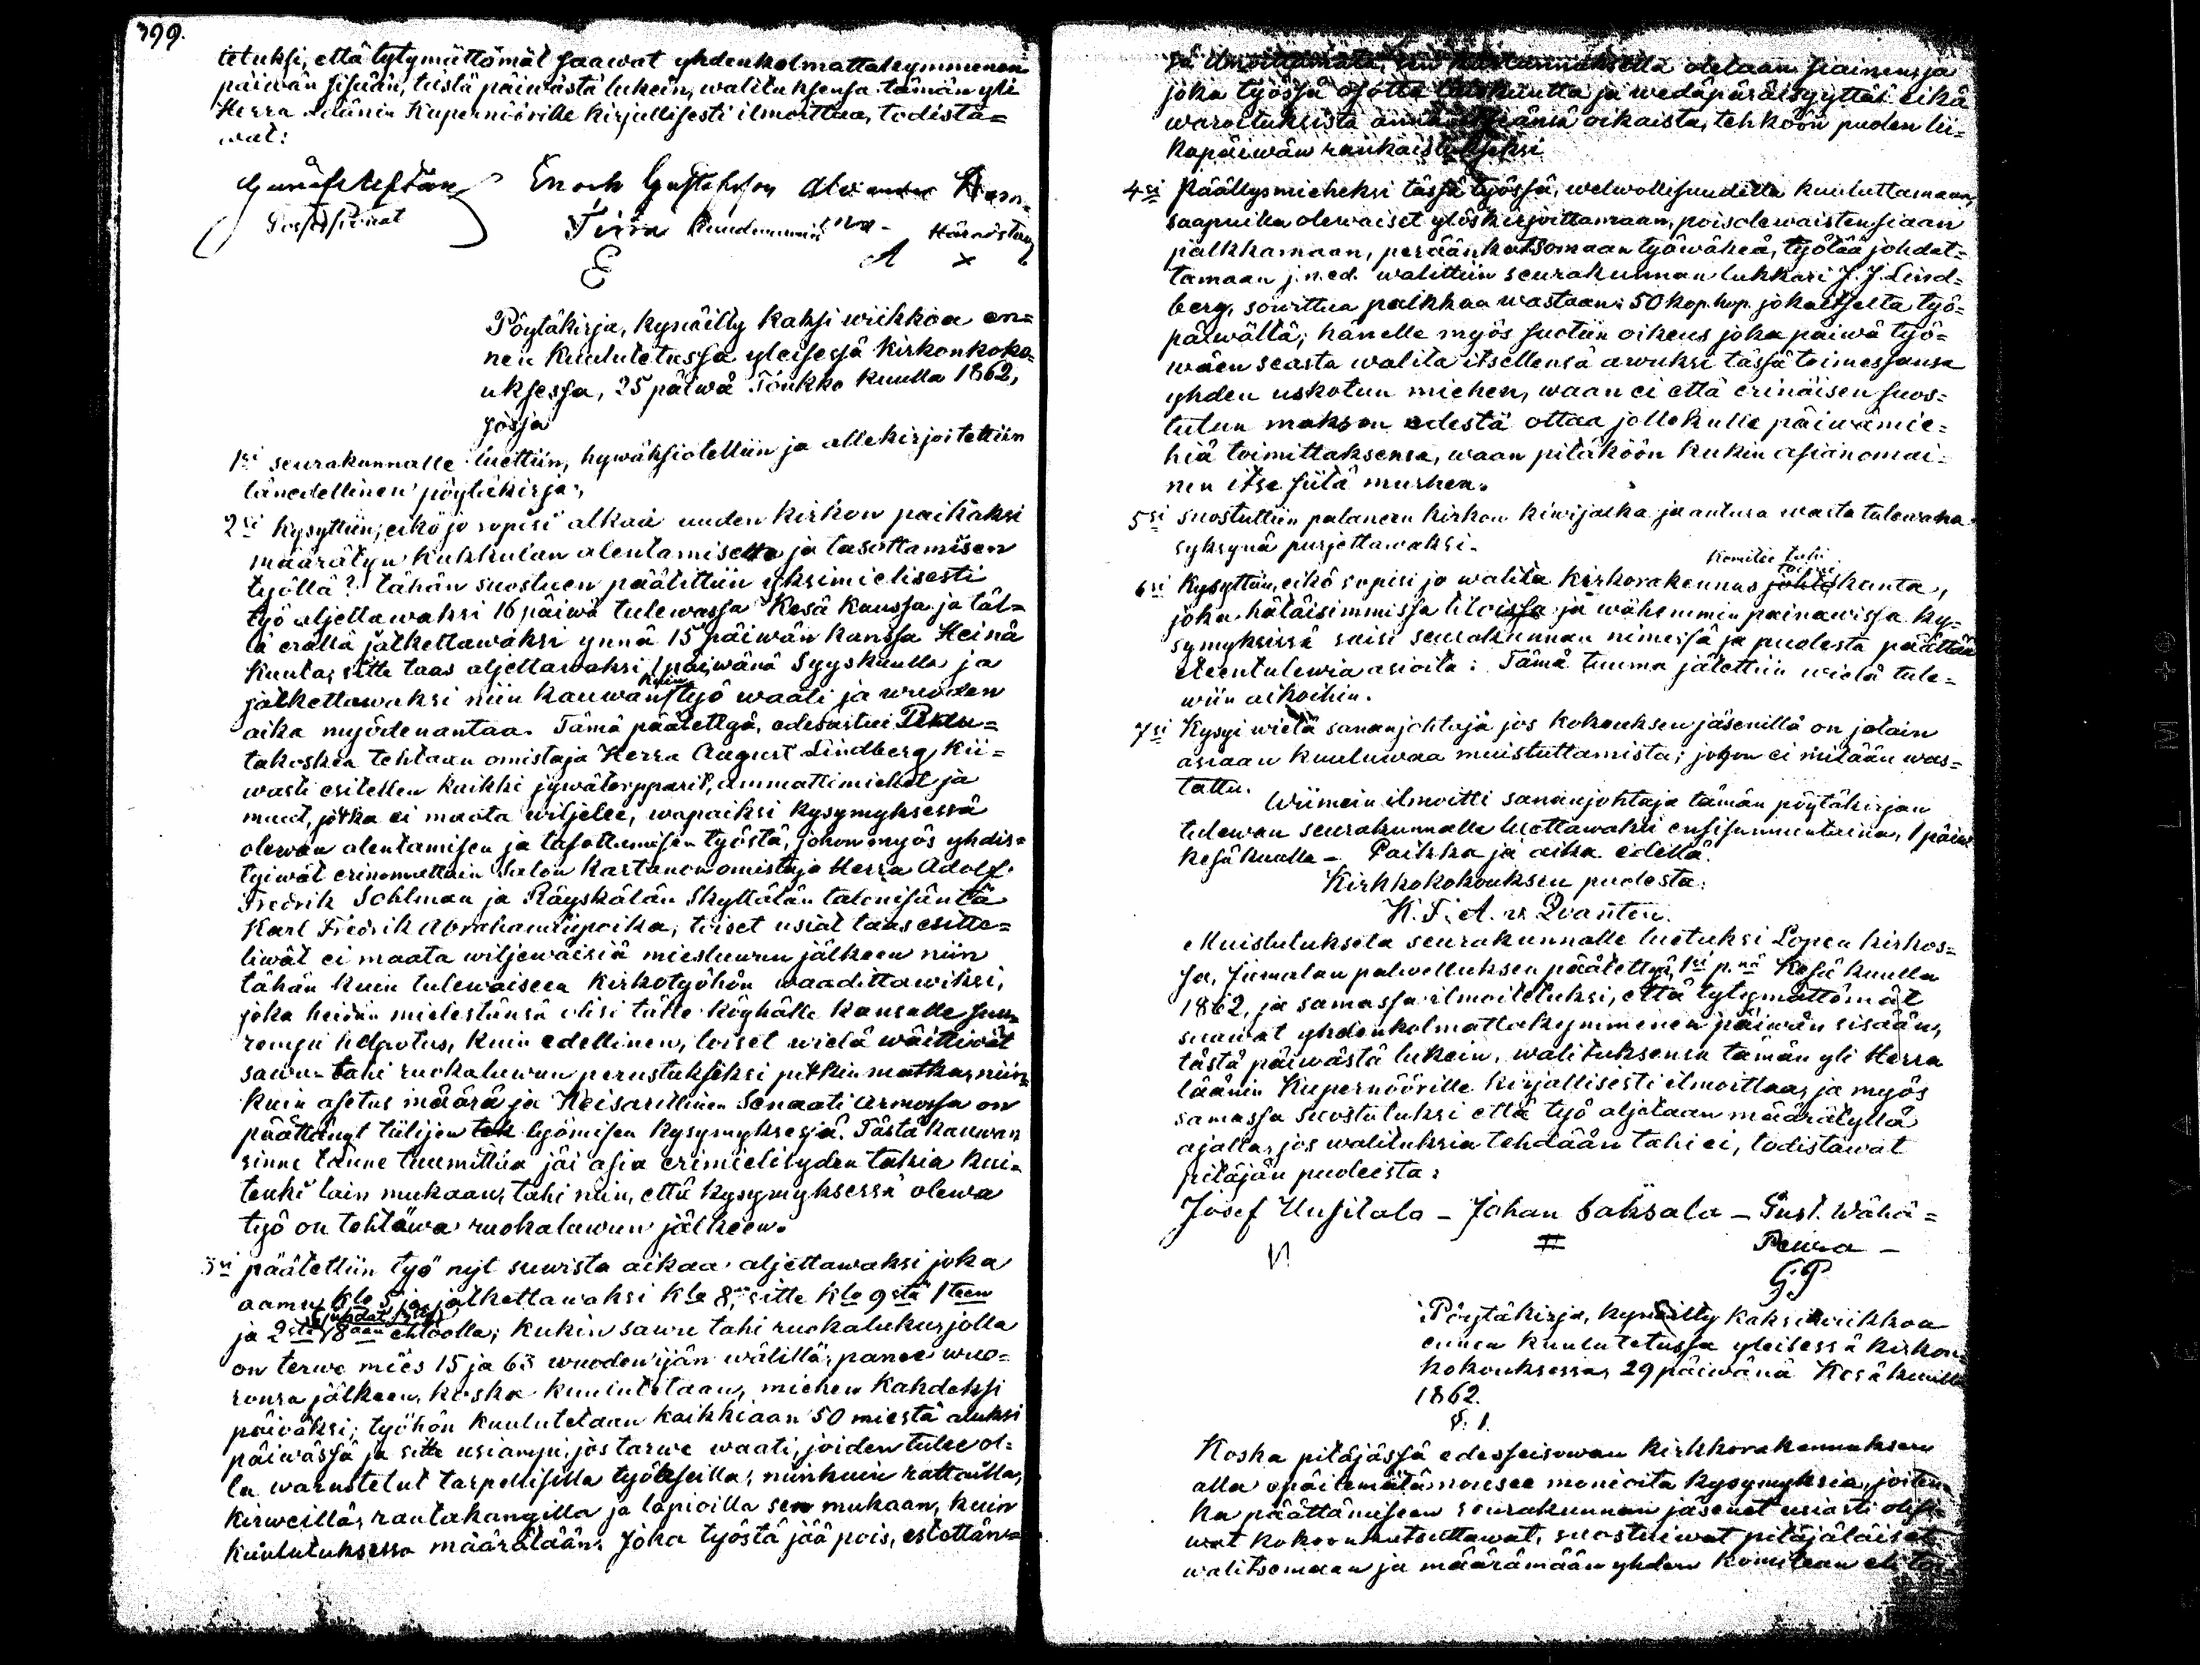 399.
tetuksi, että tytymättömät saawat yhdenkolmattakymmenen
päiwän sisään, tästä päiwästä lukein, walituksensa tämän yli
Herra Läänin Kupernöörille kirjallisesti ilmoittaa, todista=
wat:
Enoch Gustafsson
E
A x
Pöytäkirja, kynäilty kaksi wiikkoa en=
nen kuulutetussa yleisessä Kirkonkoko=
uksessa, 25 päiwä Toukko kuulla 1862,
jossa
1si seurakunnalle luettiin, hywäksiotettiin ja allekirjoitettiin
tänedellinen pöytäkirja;
2si Kysyttiin; eikö jo sopisi alkaa uuden kirkon paikaksi
määrätyn Kukkulan alentamisella ja tasottamisen
työllä? tähän suostuen päätittiin yksimielisesti
työ aljettawaksi 16 päiwä tulewassa Kesä Kuussa ja täl=
lä erällä jatkettawaksi ynnä 15 päiwän kanssa Heinä
Kuuta; sitte taas aljettawaksi 1 päiwänä Syyskuulla ja
jatkettawaksi niin kauwan kuin työ waati ja wuoden
aika myödenantaa. Tämä päätettyä, edesastui
takosken tehtaan omistaja Herra August Lindberg kii=
wasti esitellen kaikki jywätorpparit, ammattimiehet ja
muut, jotka ei maata wiljele, wapaiksi kysymyksessä
olewan alentamisen ja tasottamisen työstä, johon myös yhdis=
tyiwät erinomattain Salon Kartanon omistaja Herra Adolf
Fredrik Sohlman ja Räyskälän Skyttälän talonisäntä
Karl Fredrik Abrahaminpoika, toiset usiat taas esitte=
liwät ei maata wiljewäisiä miesluwun jälkeen niin
tähän kuin tulewaiseen Kirkotyöhön waadittawiksi,
joka heidän mielestänsä olisi tälle köyhälle kansalle suu=
rempi helpotus, kuin edellinen, toiset wielä wäittiwät
sawu= tahi ruokaluwun perustukseksi pitkin matkaa, niin=
kuin asetus määrä ja Keisarillinen Senaati armossa on
päättänyt tiilijen lyömisen kysymyksessä. Tästä kauwan
sinne tänne tuumittua jäi asia erimielisyden takia kui=
tenki lain mukaan, tahi niin, että kysymyksessä olewa
työ on tehtäwä ruokaluwun jälkeen.
3si päätettiin työ nyt suwista aikaa aljettawaksi joka
aamu klo 5 ja jatkettawaksi klo 8, sitte klo 9stä 1teen
ja 2sta 8aan ehtoolla; kukin sawu tahi ruokaluku, jolla
on terwe mies 15 ja 63 wuoden ijän wälillä, panee wuo=
ronsa jälkeen, koska kuulutetaan, miehen kahdeksi
päiwäksi; työhön kuulutetaan kaikkiaan 50 miestä aluksi
päiwässä ja sitte usiampi, jos tarwe waati, joiden tulee ol=
la warustetut tarpellisilla työkseilla; niinkuin rattailla,
kirweillä, rautakangilla ja lapioilla sen mukaan, kuin
kuulutuksessa määrätään. Joka työstä jää pois, estettän=
sä ilmoittamata, otetaan
joka työssä ja
waroituksista oikaista, tehköön puolen lii=
kapäiwän rankaistukseksi.
4si Päällysmieheksi tässä työssä, welwollisuudella kuuluttamaan,
saapuilla olewaiset ylöskirjoittamaan, poisolewaisten siaan
palkkamaan, perään katsomaan työwäkeä, työtää johdat=
tamaan j.n.ed. walittiin seurakunnan lukkari J. J. Lind=
berg, sowittua palkkaa wastaan: 50 kop. hop. jokaitselta työ=
päiwältä; hänelle myös suotiin oikeus joka päiwä työ=
wäen seasta walita itsellensä awuksi tässä toimessansa
yhden uskotun miehen, waan ei että erinäisen suos=
tutun makson edestä ottaa jollekulle päiwämie=
hiä toimittaksensa, waan pitäköön kukin asianomai=
nen itse siitä murhen.
5si suostuttiin palaneen kirkon kiwijalka ja antura wasta tulewana
syksynä purjettawaksi.
Komitee tuli
toimi
6si Kysyttiin, eikö sopisi jo walita Kirkorakennus johtokunta,
joka hätäisimmissä tiloissa ja wähemmin painawissa ky=
symyksissä saisi seurakunnan nimessä ja puolesta päättää
eteentulewia asioita: Tämä tuuma jätettiin wielä tule=
wiin aikoihin.
7si Kysyi wielä sananjohtaja jos kokouksen jäsenillä on jotain
asiaan kuuluwaa muistuttamista; johon ei mitään was=
tattu.
Wiimein ilmoitti sananjohtaja tämän pöytäkirjan
tulewan seurakunnalle luettawaksi ensisunnuntaina, 1 päiw.
Kesäkuulla - Paikka ja aika edellä.
Kirkkokokouksen puolesta:
K. F. A. v. Qvanten.
Muistutukseta seurakunnalle luetuksi Lopen kirkos=
sa, Jumalan palwelluksen päätettyä, 1si p.nä Kesä kuulla
1862, ja samassa ilmoitetuksi, että tytymättömät
saawat yhdenkolmattakymmenen päiwän sisään,
tästä päiwästä lukein, walituksensa tämän yli Herra
läänin Kupernöörille kirjallisesti ilmoittaa, ja myös
samassa suostutuksi että työ aljetaan määrätyllä
ajalla, jos walituksia tehdään tahi ei, todistawat
pitäjän puoleista:
Josef Uusitalo - Johan Saksala - Gust. Wähä=
Peura -
GP
Pöytäkirja, kynäilty kaksi wiikkoa
ennen kuulutetussa yleisessä kirkon=
kokouksessa, 29 päiwänä Kesäkuulla
1862.
§. 1.
Koska pitäjässä edesseisowan kirkkorakennuksen
alla epäilemätä nousee monioita kysymyksia, joiten=
ka päättämiseen seurakunnan jäsenet usiasti olisi=
wat kokoonkutsuttawat, suostuiwat pitäjäläiset
walitsemaan ja määrämään yhden Komitean eli